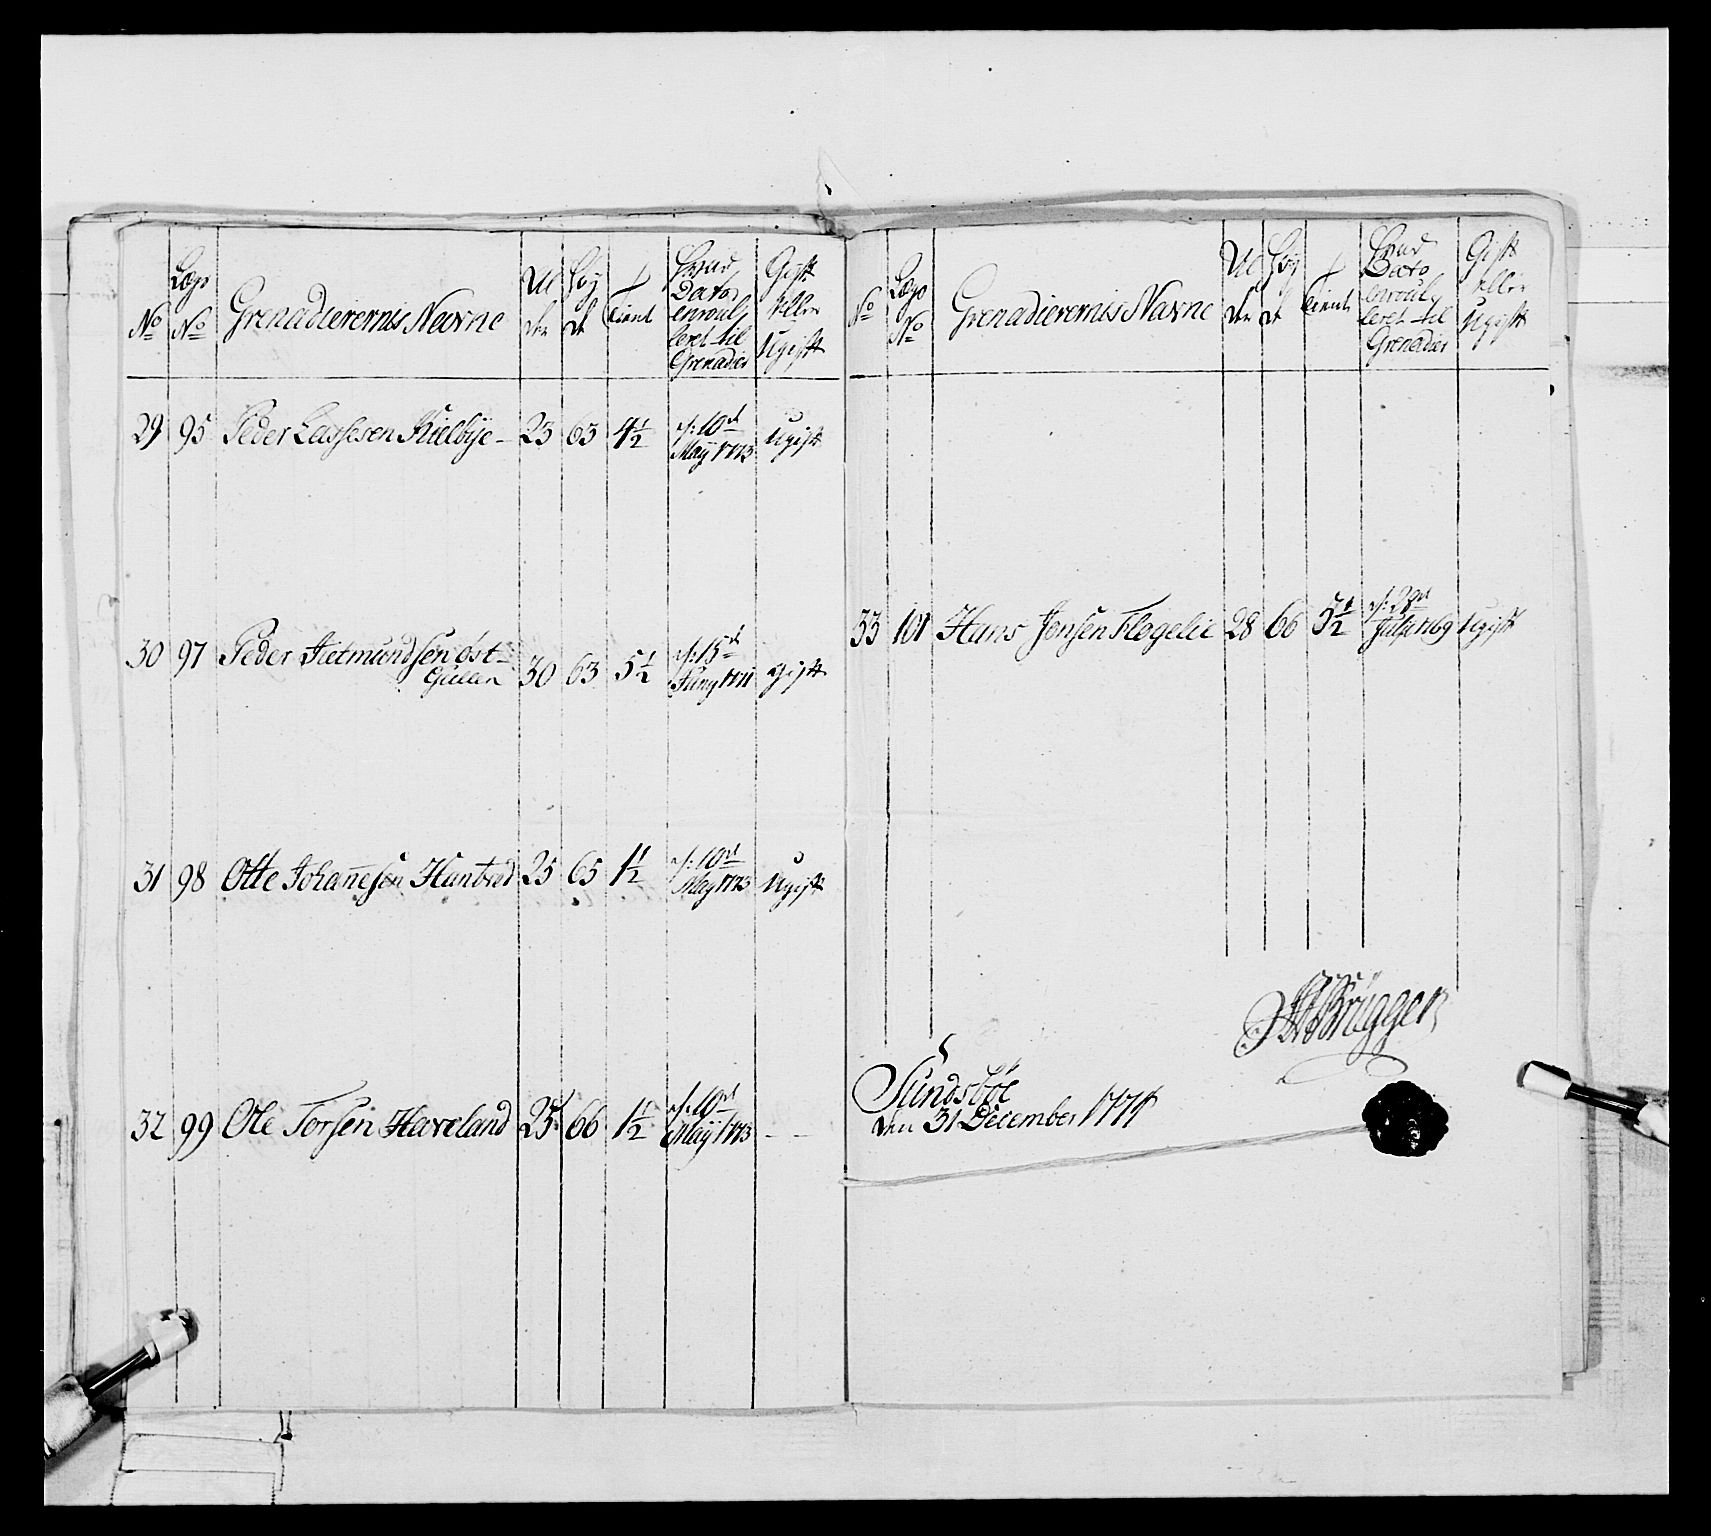 No
Lægs No
Grenadierernis Navne
Al der
Høy de
tient
Hvad Dato enroul leret til Grenadier
Gift eller Ugift
29 95 Peder Lassesen Kielbye - 23 63 4½ d: 10de Maij 1773 Ugift
30 97 Peder Ketmundsen øst- Gullen 30 63 5½ d: 15de Juny 1771 gift
31 98 Otte Johannesen Hantved 25 65 1½ d: 10de May 1773 Ugift
32 99 Ole Torsen Haveland 25 66 1½ d: 10de Maij 1773 - -
No
Lægs No
Grenadierernis Navne
Al der
Høy de
tient
Hvad Dato enroul leret til Grenadier
Gift eller Ugift
33 101 Hans Jensen Flogelie 28 66 5½ 1769 Ugift
Brüggen
Sundsbøe
den 31 December 1774